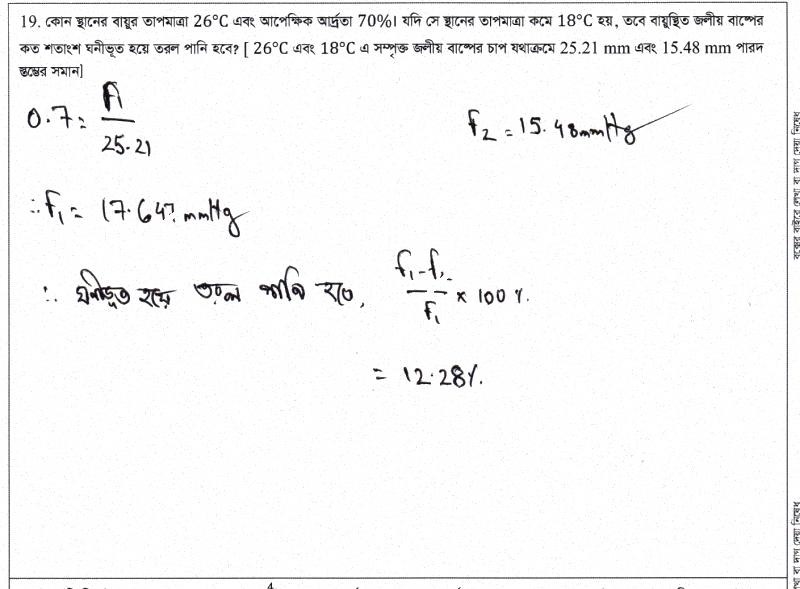 19. কোন স্থানের বায়ুর তাপমাত্রা 26°C এবং আপেক্ষিক আর্দ্রতা 70%। যদি সে স্থানের তাপমাত্রা কমে 18°C হয়, তবে বায়ুস্থিত জলীয় বাষ্পের
কত শতাংশ ঘনীভূত হয়ে তরল পানি হবে? [ 26°C এবং 18°C এ সম্পৃক্ত জলীয় বাষ্পের চাপ যথাক্রমে 25.21 mm এবং 15.48 mm পারদ
স্তম্ভের সমান]
0.7 = f₁/25.21
f₂ = 15.48 mmHg
∴ f₁ = 17.647 mmHg
∴ ঘনীভূত হয়ে তরল পানি হবে, (f₁-f₂)/f₁ × 100 %.
= 12.28%.